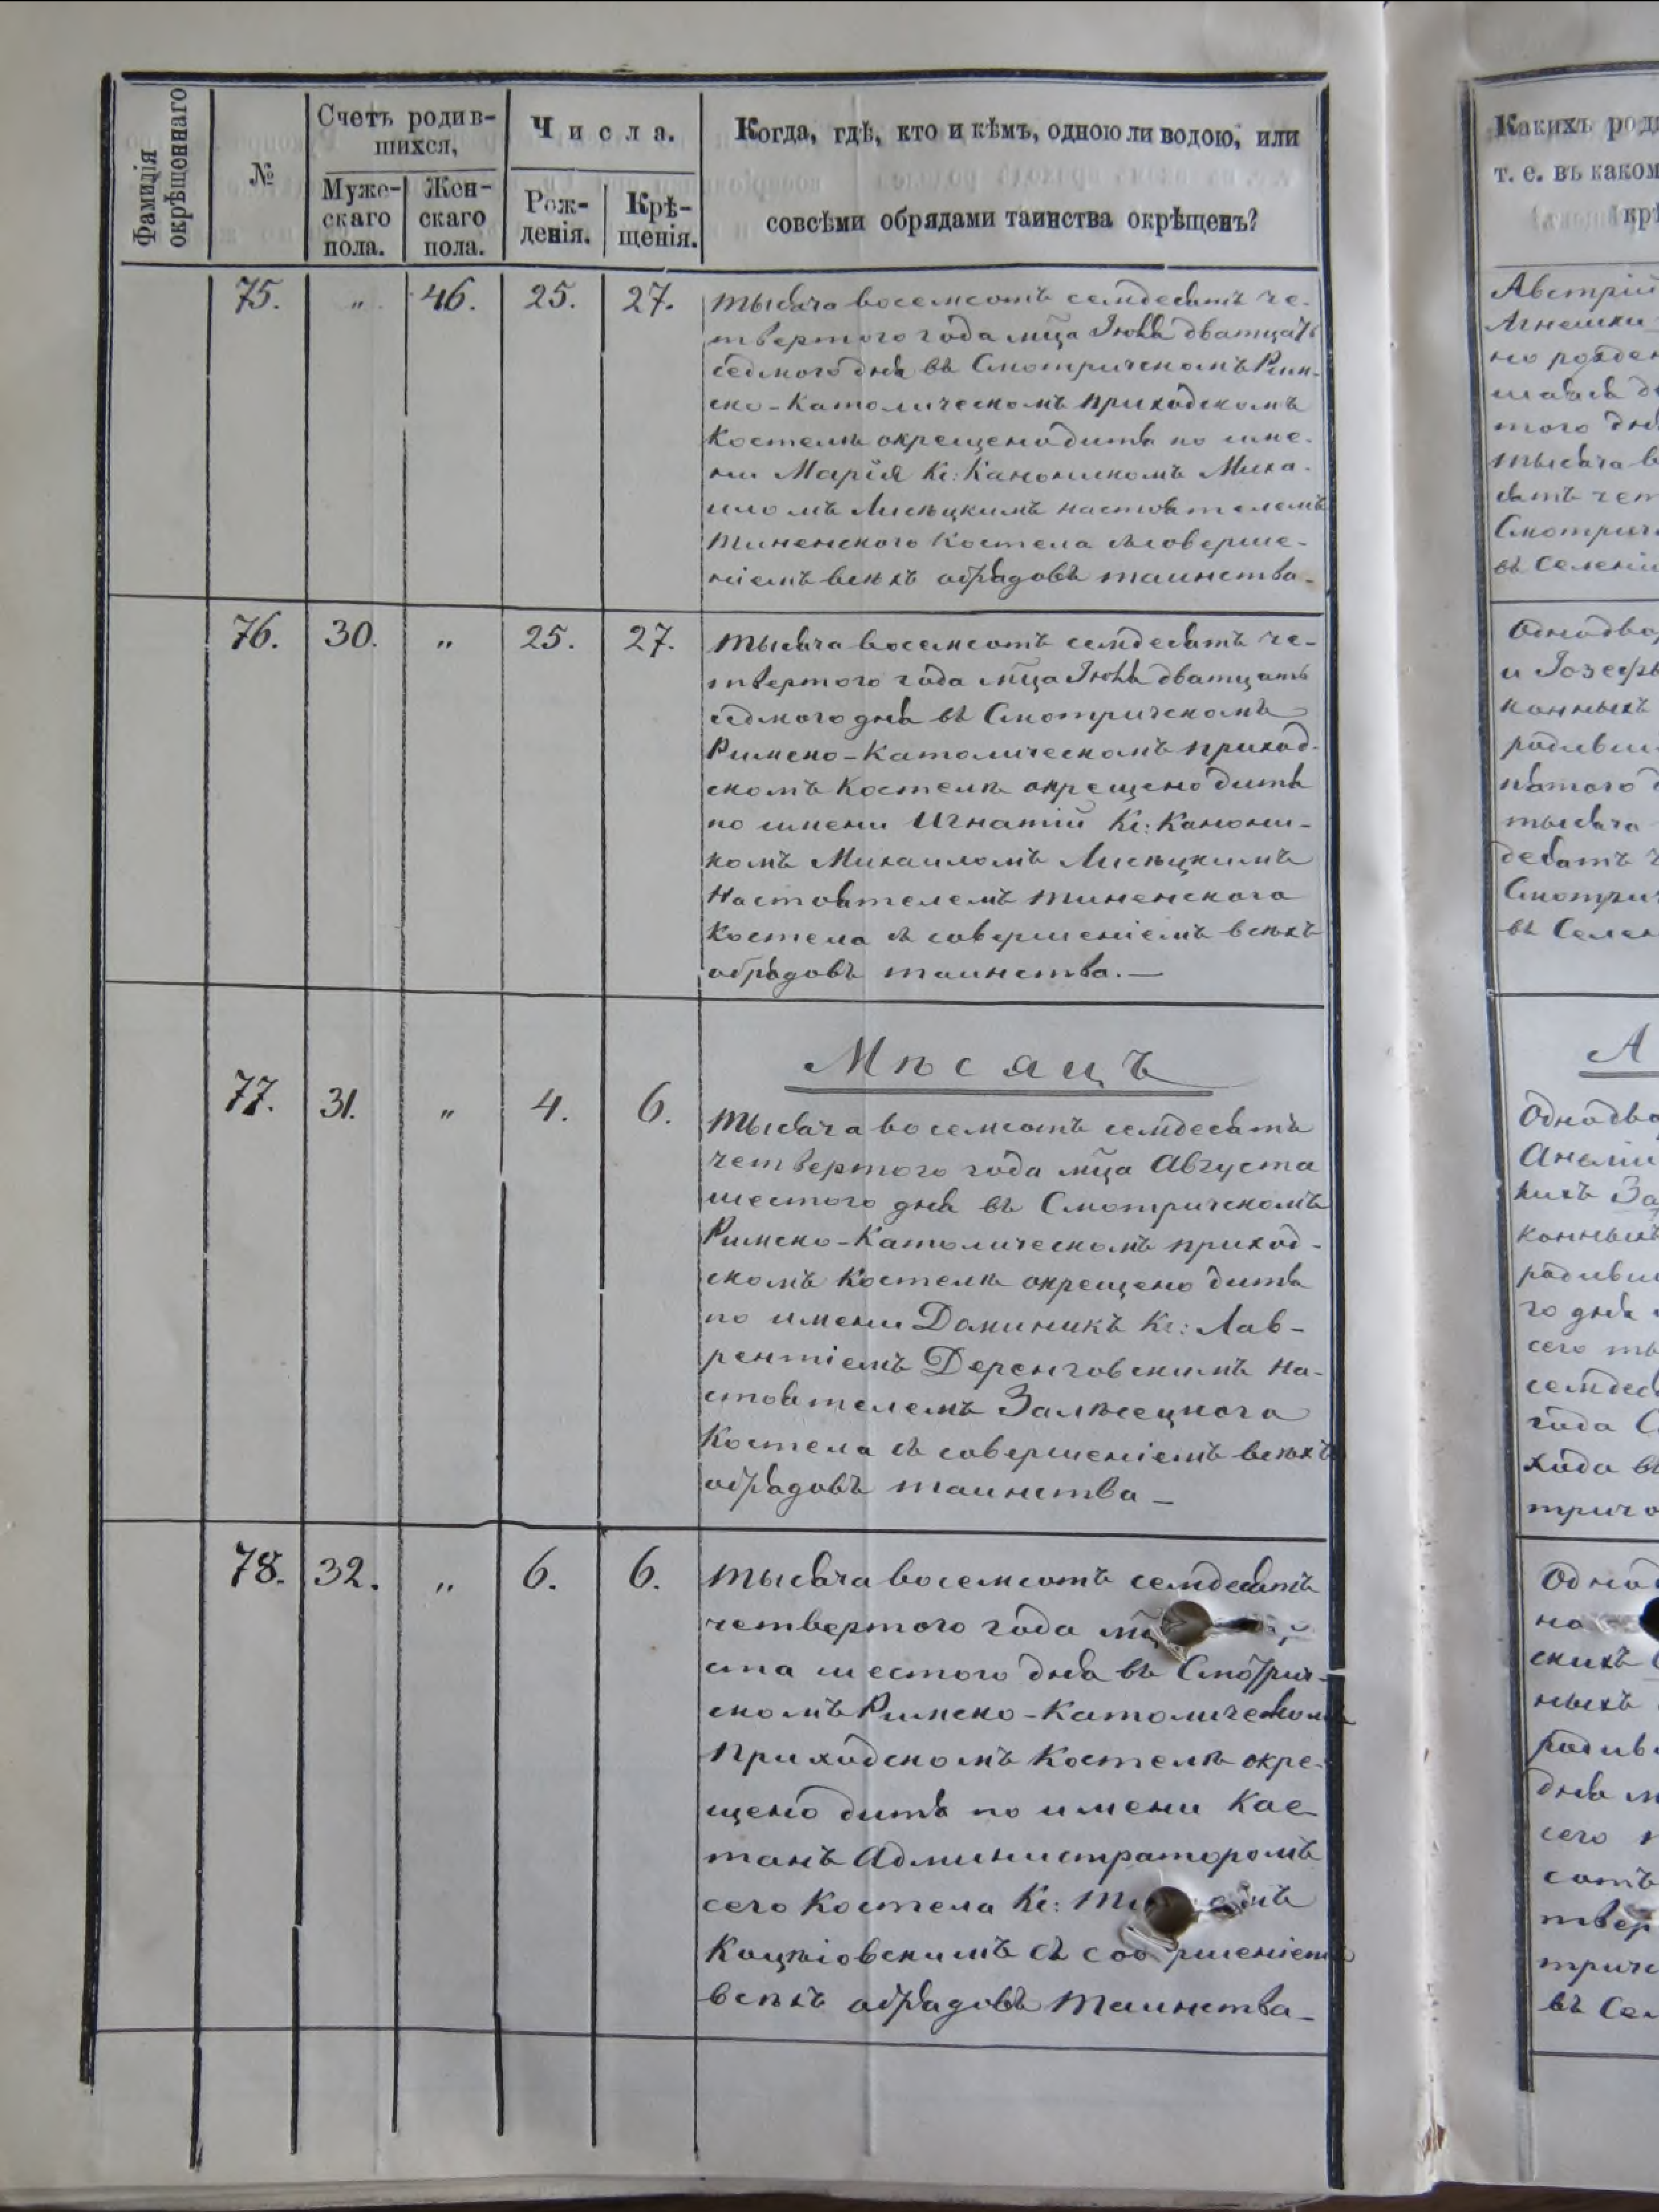 Фамилія окрѣщеннаго
№
Счетъ родившихся,
Мужескаго пола.
Женскаго пола.
Числа.
Рожденія.
Крѣщенія.
Когда, гдѣ, кто и кѣмъ, одною ли водою, или
совсѣми обрядами таинства окрѣщенъ?
75. " 46. 25. 27.
Тысяча восемсотъ семдесятъ че-
твертого года мца Іюля дватцать
седмого дня въ Смотрическомъ Рим-
ско-Католическомъ приходскомъ
Костелѣ окрещено дитя по име-
ни Марія Кс: Каноникомъ Миха-
иломъ Лисѣцкимъ настоятелемъ
Тиненского Костела съ соверше-
ніемъ всѣхъ обрядовъ таинства-
76. 30. " 25. 27.
Тысяча восемсотъ семдесятъ че-
твертого года мца Іюля дватцать
седмого дня въ Смотрическомъ
Римско-Католическомъ приход-
скомъ Костелѣ окрещено дитя
по имени Игнатій Кс: Канони-
комъ Михаиломъ Лисѣцкимъ
Настоятелемъ Тиненского
Костела съ совершеніемъ всѣхъ
обрядовъ таинства.—
Мѣсяцъ
77. 31. " 4. 6.
Тысяча восемсотъ семдесятъ
четвертого года мца Августа
шестого дня въ Смотрическомъ
Римско-Католическомъ приход-
скомъ Костелѣ окрещено дитя
по имени Доминикъ Кс: Лав-
рентіемъ Деренговскимъ На-
стоятелемъ Залѣсецкого
Костела съ совершеніемъ всѣхъ
обрядовъ таинства—
78. 32. " 6. 6.
Тысяча восемсотъ семдесятъ
четвертого года
ста шестого дня въ Смотрич-
скомъ Римско-Католическомъ
Приходскомъ Костелѣ окре-
щено дитя по имени Кае
танъ Администраторомъ
сего Костела Кс:
съ
всѣхъ обрядовъ Таинства-
Какихъ
т. е. въ
Австрій
Агнешки
того
Тысяча
въ
и
тысяча
въ
А
сего
года
въ
сего
въ